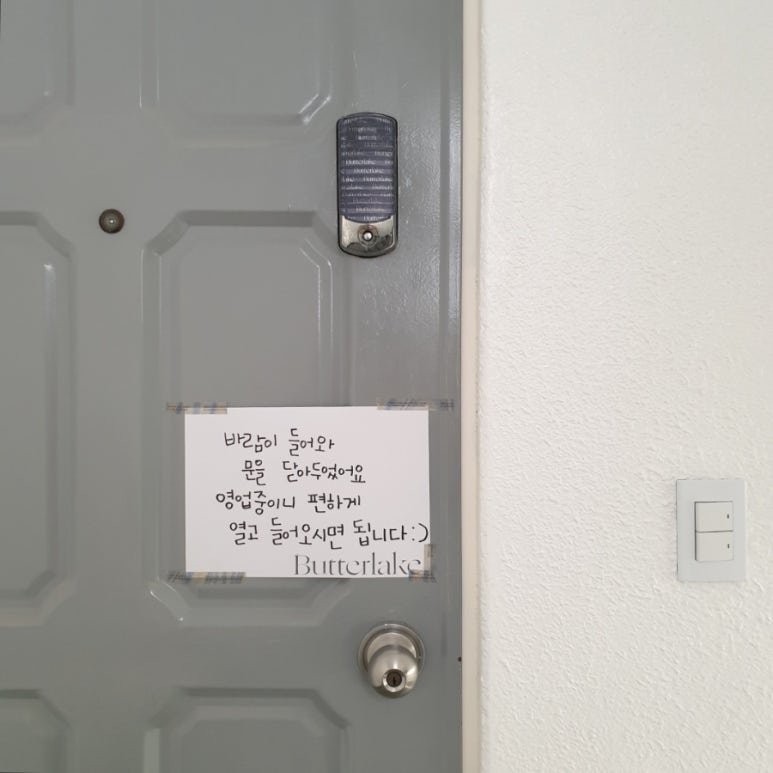 Butterlake
바람이 들어와
문을 닫아두었어요
영업중이니 편하게
열고 들어오시면 됩니다:)
Butterlake